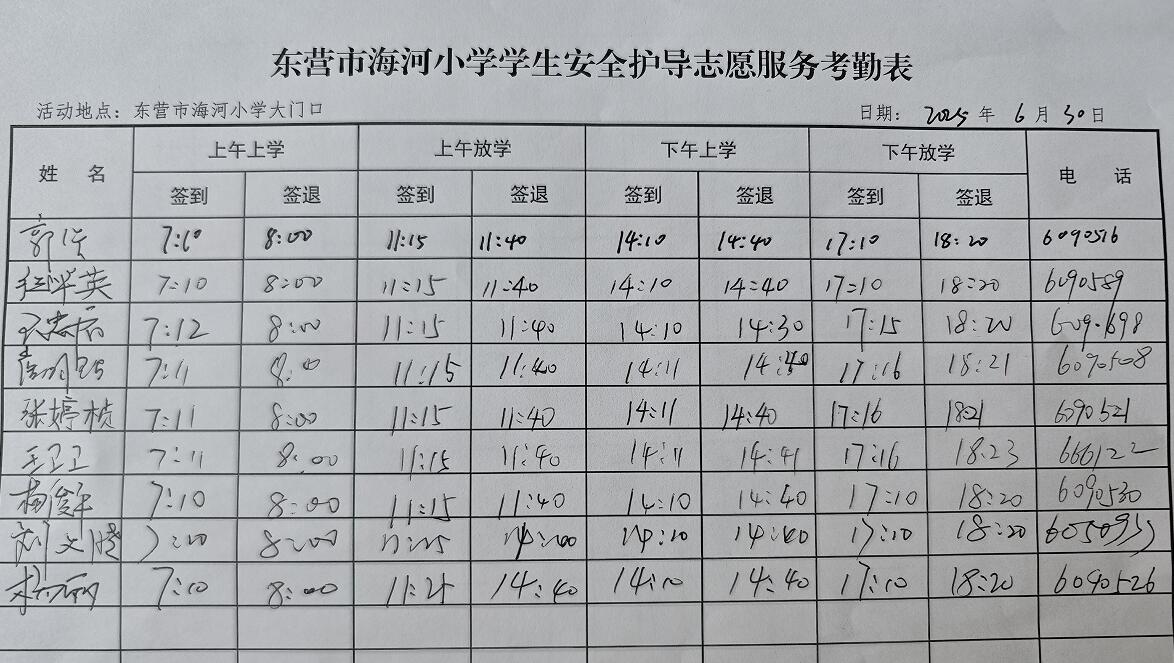 东营市海河小学学生安全护导志愿服务考勤表
活动地点：东营市海河小学大门口 日期： 2025 年 6 月 30 日
姓 名 上午上学 上午放学 下午上学 下午放学 电 话
签到 签退 签到 签退 签到 签退 签到 签退
郭 7:10 8:00 11:15 11:40 14:10 14:40 17:10 18:20 6090516
英 7:10 8:00 11:15 11:40 14:10 14:40 17:10 18:20 6090589
7:12 8:00 11:15 11:40 14:10 14:30 17:15 18:20
7:11 8:00 11:15 11:40 14:11 14:40 17:16 18:21 6090508
张婷桢 7:11 8:00 11:15 11:40 14:11 14:40 17:16 1821 6090521
王卫卫 7:11 8:00 11:15 11:40 14:11 14:41 17:16 18:23 666122
杨俊午 7:10 8:00 11:15 11:40 14:10 14:40 17:10 18:20 6090530
刘文 8:00 14:10 14:40 17:10 18:20
7:10 8:00 11:25 14:40 14:10 14:40 17:10 18:20 6090526